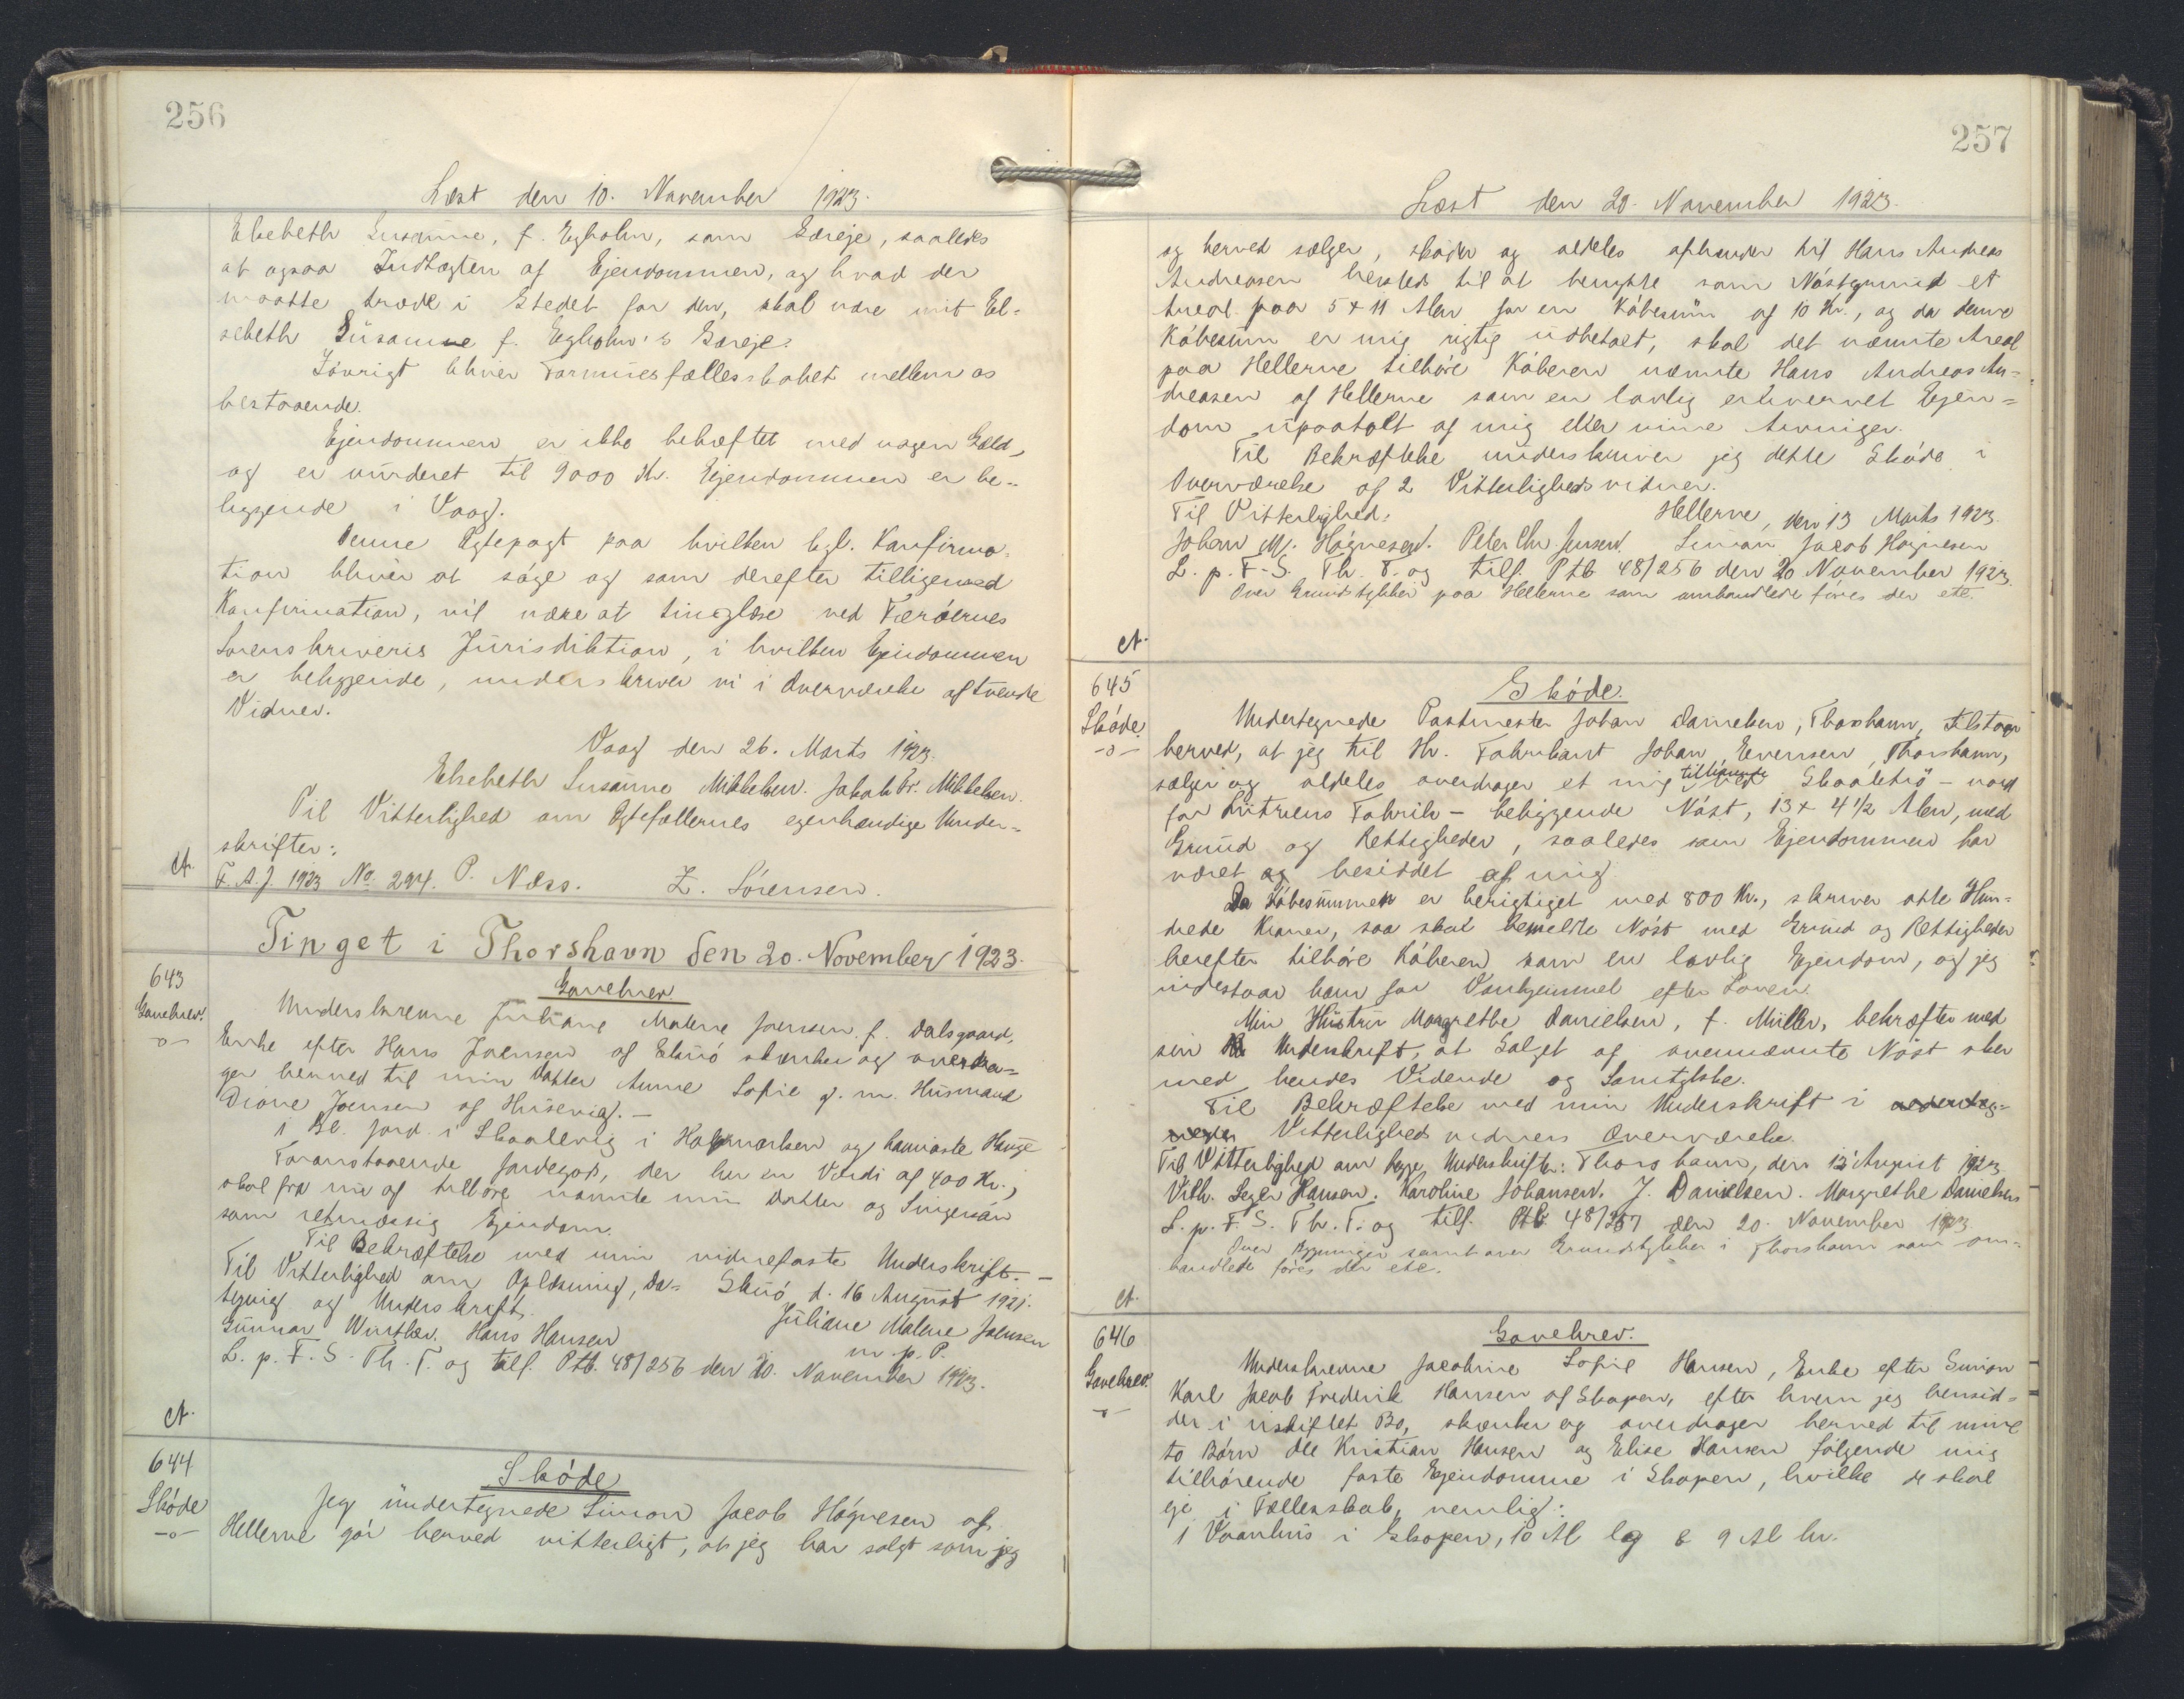 256
Læst den 10. November 1923.
Elsebeth Susanne, f. Egholm, som Særeje, saaledes
at ogsaa Indtægten af Ejendommen, og hvad der
maatte træde i Stedet for den, skal være mit El=
sebeth Susanne f. Egholm's Særeje.
Iøvrigt bliver Formuesfællesskabet mellem os
bestaaende.
Ejendommen er ikke behæftet med nogen Gæld,
og er vurderet til 9000 Kr. Ejendommen er be=
liggende i Vaag.
Denne Ægtepagt paa hvilken kgl. Konfirma=
tion bliver at søge og som derefter tilligemed
Konfirmation, vil være at tinglæse ved Færøernes
Sorenskriveris Jurisdiktion, i hvilken Ejendommen
er beliggende, underskriver vi i Overværelse af tvende
Vidner.
Vaag den 26. Marts 1923.
Elsebeth Susanne Mikkelsen. Jakob Fr. Mikkelsen.
Til Vitterlighed om Ægtefællernes egenhændige Under=
skrifter:
F. A. J. 1923 No. 294. P. Næss. Z. Sørensen.
Tinget i Thorshavn den 20. November 1923.
643
Gavebrev.
Gavebrev.
Underskrevne Juliane Malene Joensen f. Dalsgaard,
Enke efter Hans Joensen af Skuø skænker og overdra=
ger herved til min Datter Anne Sofie g. m. Husmand
Dione Joensen af Husevig. —
i Skaalevig i
Foranstaaende Jordegods, der har en Værdi af 400 Kr.,
skal fra nu af tilhøre nævnte min Datter og Svigersøn
som retmæssig Ejendom.
Til Bekræftelse med min vidnefaste Underskrift. —
Til Vitterlighed om Oplæsning, Da= Skuø d. 16 August 1921.
tering og Underskrift. Juliane Malene Joensen
Gunnar Winther. Hans Hansen m. p. P.
L. p. F. S. Th. T. og tilf. Ptb. 48/256 den 20. November 1923.
644
Skøde
Skøde
Jeg undertegnede Simon Jacob Høgnesen af
Hellerne gør herved vitterligt, at jeg har solgt som jeg
257
Læst den 20. November 1923.
og herved sælger, skøder og aldeles afhænder til Hans Andreas
Andreasen hersteds til at benytte som Nøstgrund et
Areal paa 5 x 11 Alen for en Købesum af 10 Kr., og da denne
Købesum er mig rigtig udbetalt, skal det nævnte Areal
paa Hellerne tilhøre Køberen nævnte Hans Andreas An=
dreasen af Hellerne som en lovlig erhvervet Ejen=
dom upaatalt af mig eller mine Arvinger.
Til Bekræftelse underskriver jeg dette Skøde i
Overværelse af 2 Vitterlighedsvidner.
Til Vitterlighed: Hellerne, den 13 Marts 1923.
Johan M. Høgnesen. Peter Chr. Jensen. Simon Jacob Høgnesen
L. p. F. S. Th. T. og tilf. Ptb 48/256 den 20 November 1923.
Over Grundstykker paa Hellerne som omhandlede føres der etc.
645
Skøde.
Skøde.
Undertegnede Postmester Johan Danielsen, Thorshavn, tilstaar
herved, at jeg til Hr. Fabrikant Johan Evensen, Thorshavn,
sælger og aldeles overdrager et mig tilhørende ved Skaaletrø — nord
for Lützens Fabrik — beliggende Nøst, 13 x 4 1/2 Alen, med
Grund og Rettigheder, saaledes som Ejendommen har
været og besiddet af mig.
Da Købesummen er berigtiget med 800 Kr., skriver otte Hun=
drede Kroner, saa skal bemeldte Nøst med Grund og Rettigheder
herefter tilhøre Køberen som en lovlig Ejendom, og jeg
indestaar ham for Vanhjemmel efter Loven.
Min Hustru Margrethe Danielsen, f. Müller, bekræfter med
sin Underskrift, at Salget af ovennævnte Nøst sker
med hendes Vidende og Samtykke.
Til Bekræftelse med min Underskrift i
Vitterlighedsvidners Overværelse.
Til Vitterlighed om Underskrifter: Thorshavn, den 12 August 1923
Vilh. Seger Hansen. Karoline Johansen. J. Danielsen. Margrethe Danielsen
L. p. F. S. Th. T. og tilf. Ptb 48/257 den 20. November 1923.
Over Bygninger samt over Grundstykker i Thorshavn som om=
handlede føres der etc.
646
Gavebrev.
Gavebrev.
Underskrevne Jacobine Sofie Hansen, Enke efter Simon
Karl Jacob Frederik Hansen af Skopen, efter hvem jeg hensid=
der i uskiftet Bo, skænker og overdrager herved til mine
to Børn Ole Kristian Hansen og Elise Hansen følgende mig
tilhørende faste Ejendomme i Skopen, hvilke de skal
eje i Fællesskab, nemlig:
1 Vaanhus i Skopen, 10 Al lg & 9 Al br.